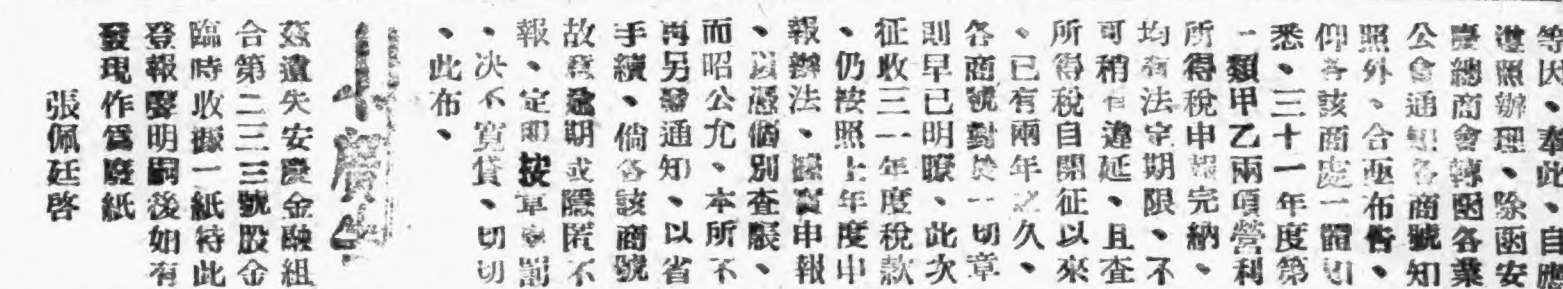 等因、奉此、自應
遵照辦理、除函安
慶總商會轉函各業
公會通知各商號知
照外、合亟布告、
仰各該商號一體知
悉、三十一年度第
一類甲乙兩項營利
所得稅申報完納、
均有法定期限、不
可稍有違延、且查
所得稅自開征以來
、已有兩年之久、
各商號對於一切章
則早已明瞭、此次
征收三一年度稅款
、仍按照上年度申
報辦法、據實申報
、以憑個別查賬、
而昭公允、本所不
再另發通知、以省
手續、倘各該商號
故意逾期或隱匿不
報、定即按章處罰
、决不寬貸、切切
、此布、
茲遺失安慶金融組
合第二三三號股金
臨時收據一紙特此
登報聲明嗣後如有
發現作爲廢紙
張佩廷啓